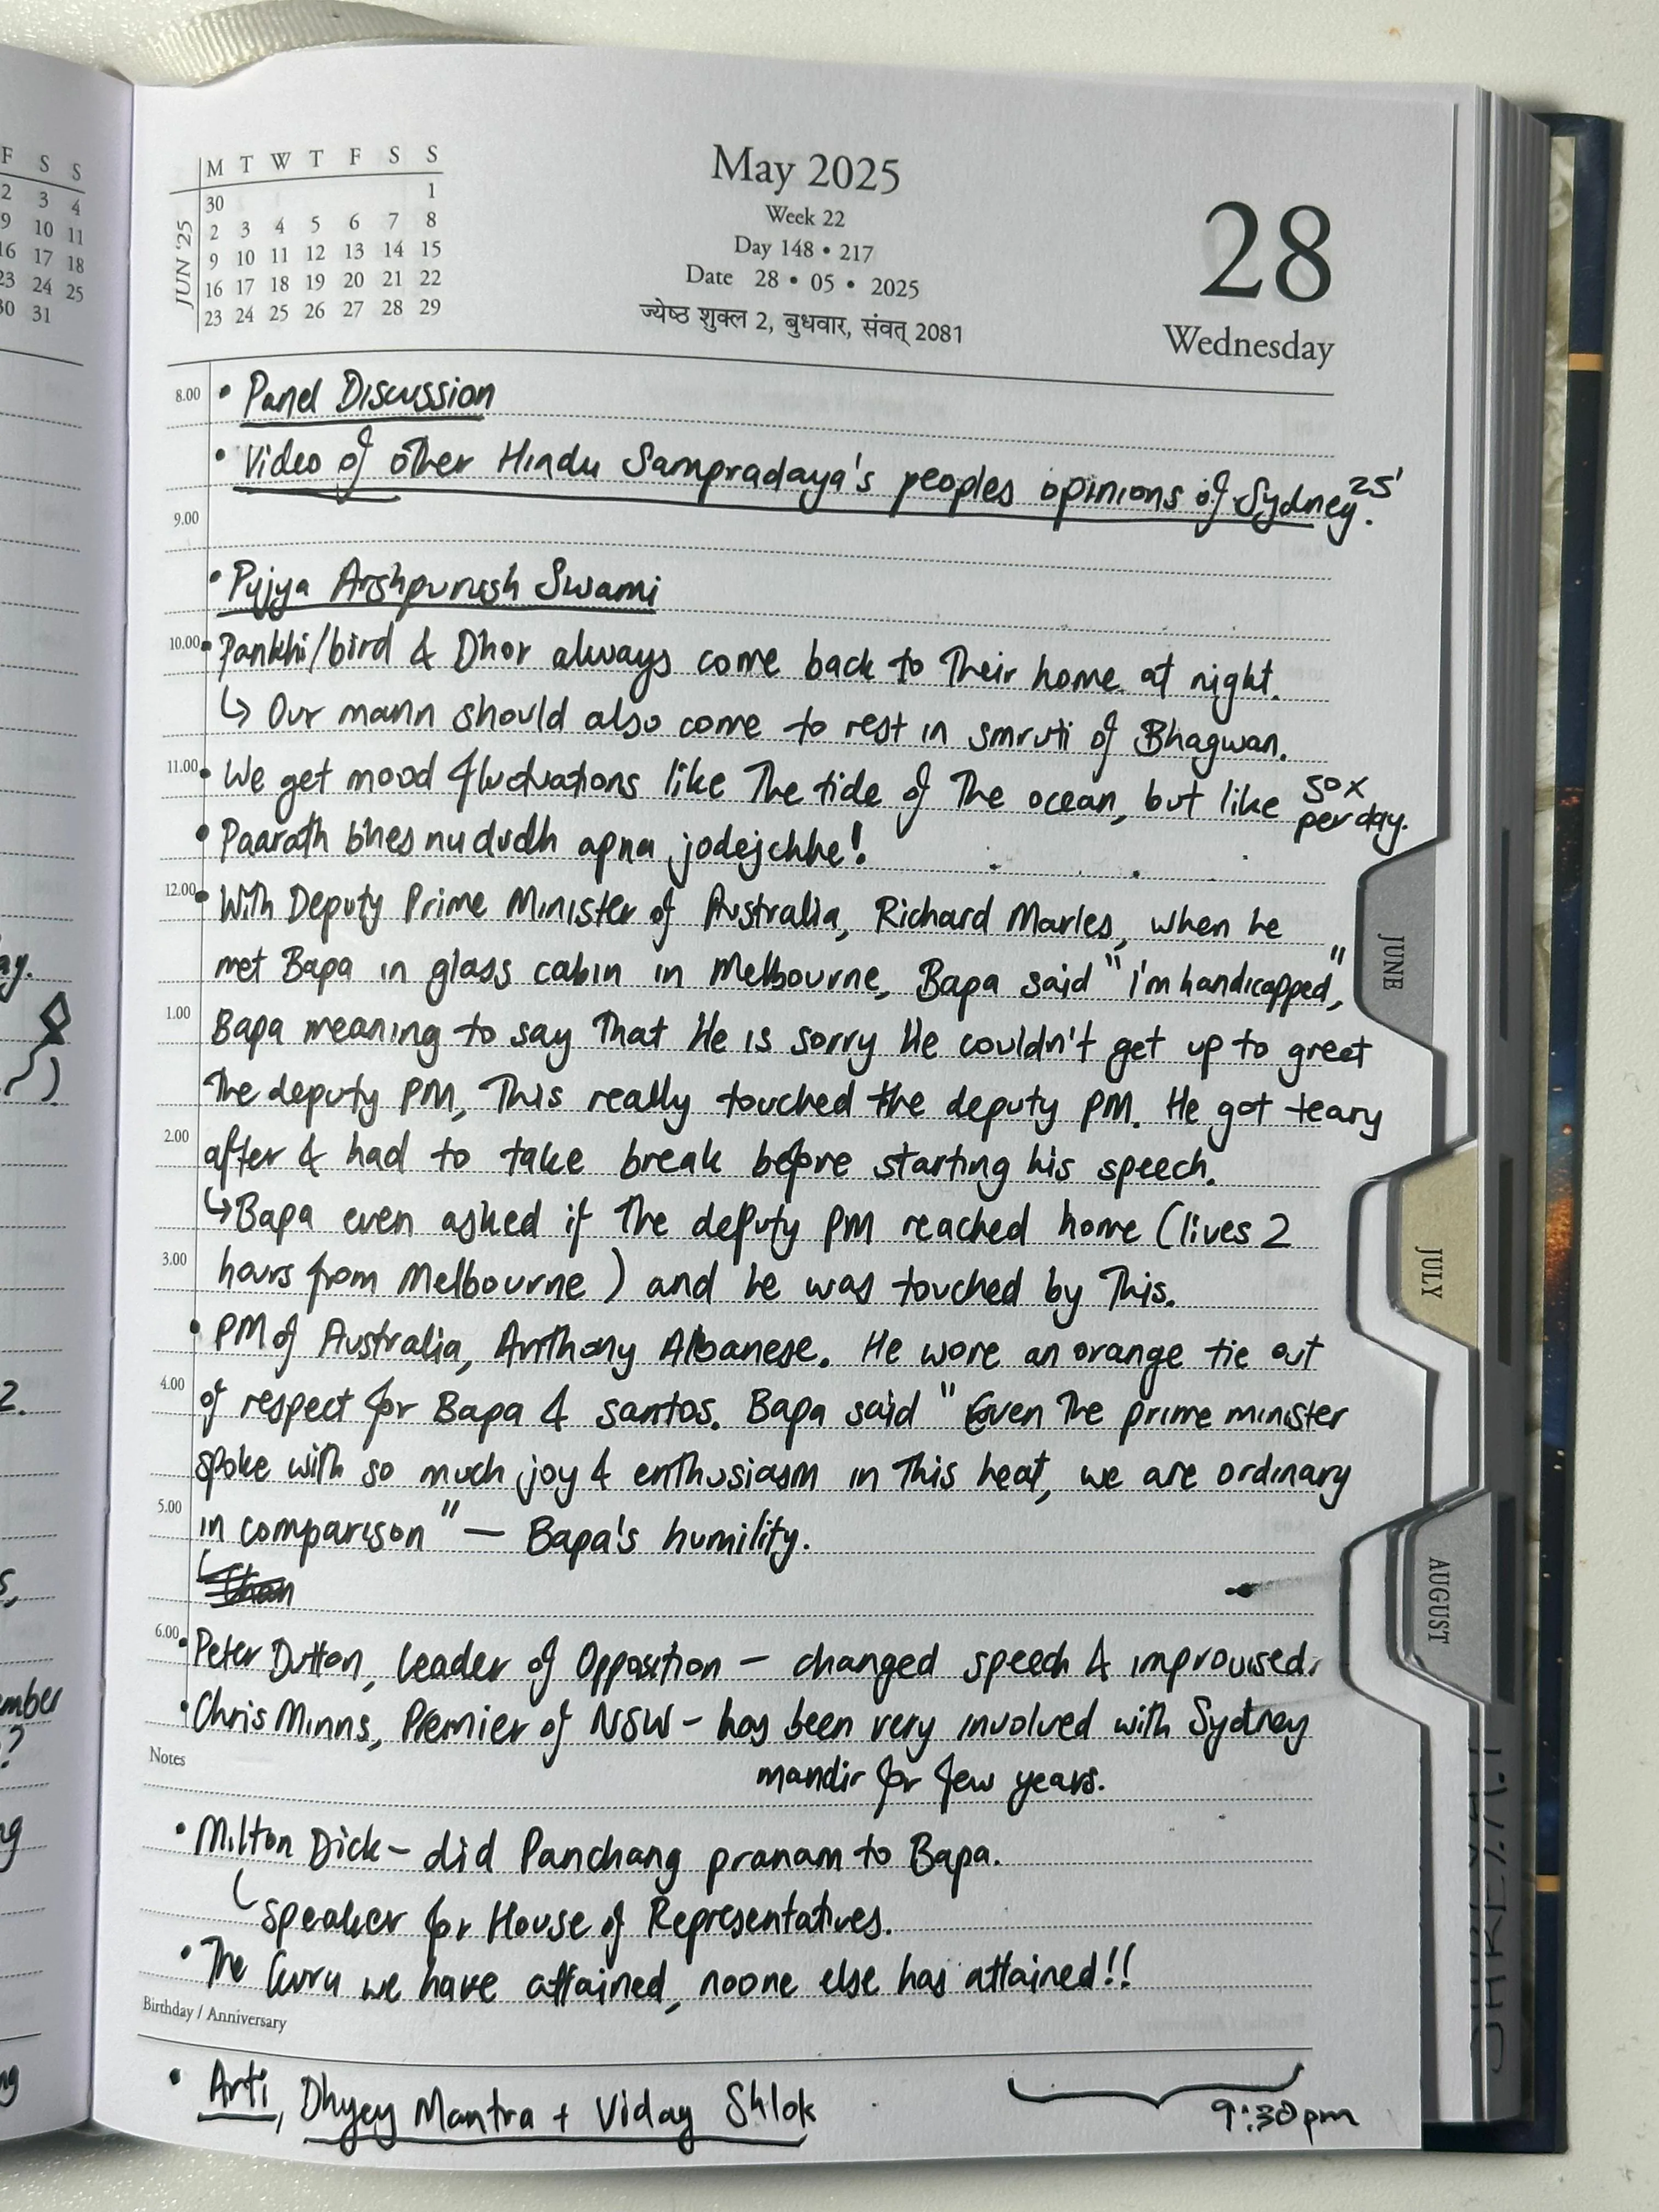 F S S
2 3 4
9 10 11
16 17 18
23 24 25
30 31
M T W T F S S
30 1
2 3 4 5 6 7 8
9 10 11 12 13 14 15
16 17 18 19 20 21 22
23 24 25 26 27 28 29
JUN '25
May 2025
Week 22
Day 148 • 217
Date 28 • 05 • 2025
ज्येष्ठ शुक्ल 2, बुधवार, संवत् 2081
28
Wednesday
8.00 • Panel Discussion
• Video of other Hindu Sampradaya's peoples opinions of Sydney. 25'
9.00
• Pujya Arshpurush Swami
10.00 • Pankhi/bird & Dhor always come back to their home at night.
↳ Our mann should also come to rest in smruti of Bhagwan.
11.00 • We get mood fluctuations like the tide of the ocean, but like 50x per day.
• Paarath bhes nu dudh apna jodejchhe!
12.00 • With Deputy Prime Minister of Australia, Richard Marles, when he
met Bapa in glass cabin in Melbourne, Bapa said "I'm handicapped,"
1.00 Bapa meaning to say that He is sorry He couldn't get up to greet
the deputy PM, This really touched the deputy PM. He got teary
2.00 after & had to take break before starting his speech.
↳ Bapa even asked if the deputy PM reached home (lives 2
3.00 hours from Melbourne) and he was touched by this.
• PM of Australia, Anthony Albanese. He wore an orange tie out
4.00 of respect for Bapa & santos. Bapa said "Even the prime minister
spoke with so much joy & enthusiasm in this heat, we are ordinary
5.00 in comparison" — Bapa's humility.
6.00 • Peter Dutton, Leader of Opposition — changed speech & improvised.
• Chris Minns, Premier of NSW - has been very involved with Sydney
Notes mandir for few years.
• Milton Dick - did Panchang pranam to Bapa.
↳ Speaker for House of Representatives.
• The Guru we have attained, noone else has attained!!
Birthday / Anniversary
• Arti, Dhyey Mantra + Viday Shlok
9:30pm
JUNE
JULY
AUGUST